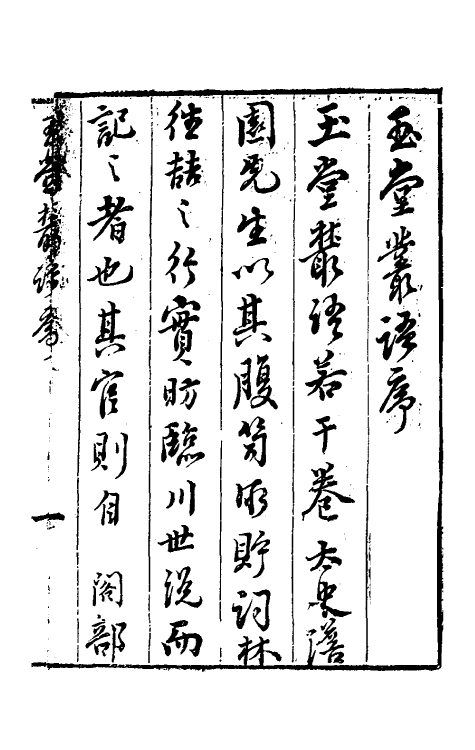 玉堂叢語序
玉堂叢語若干卷太史澹
園先生以其腹笥所貯詞林
往喆之行實昉臨川世說而
記之者也其官則自　閣部
玉堂叢語序
一